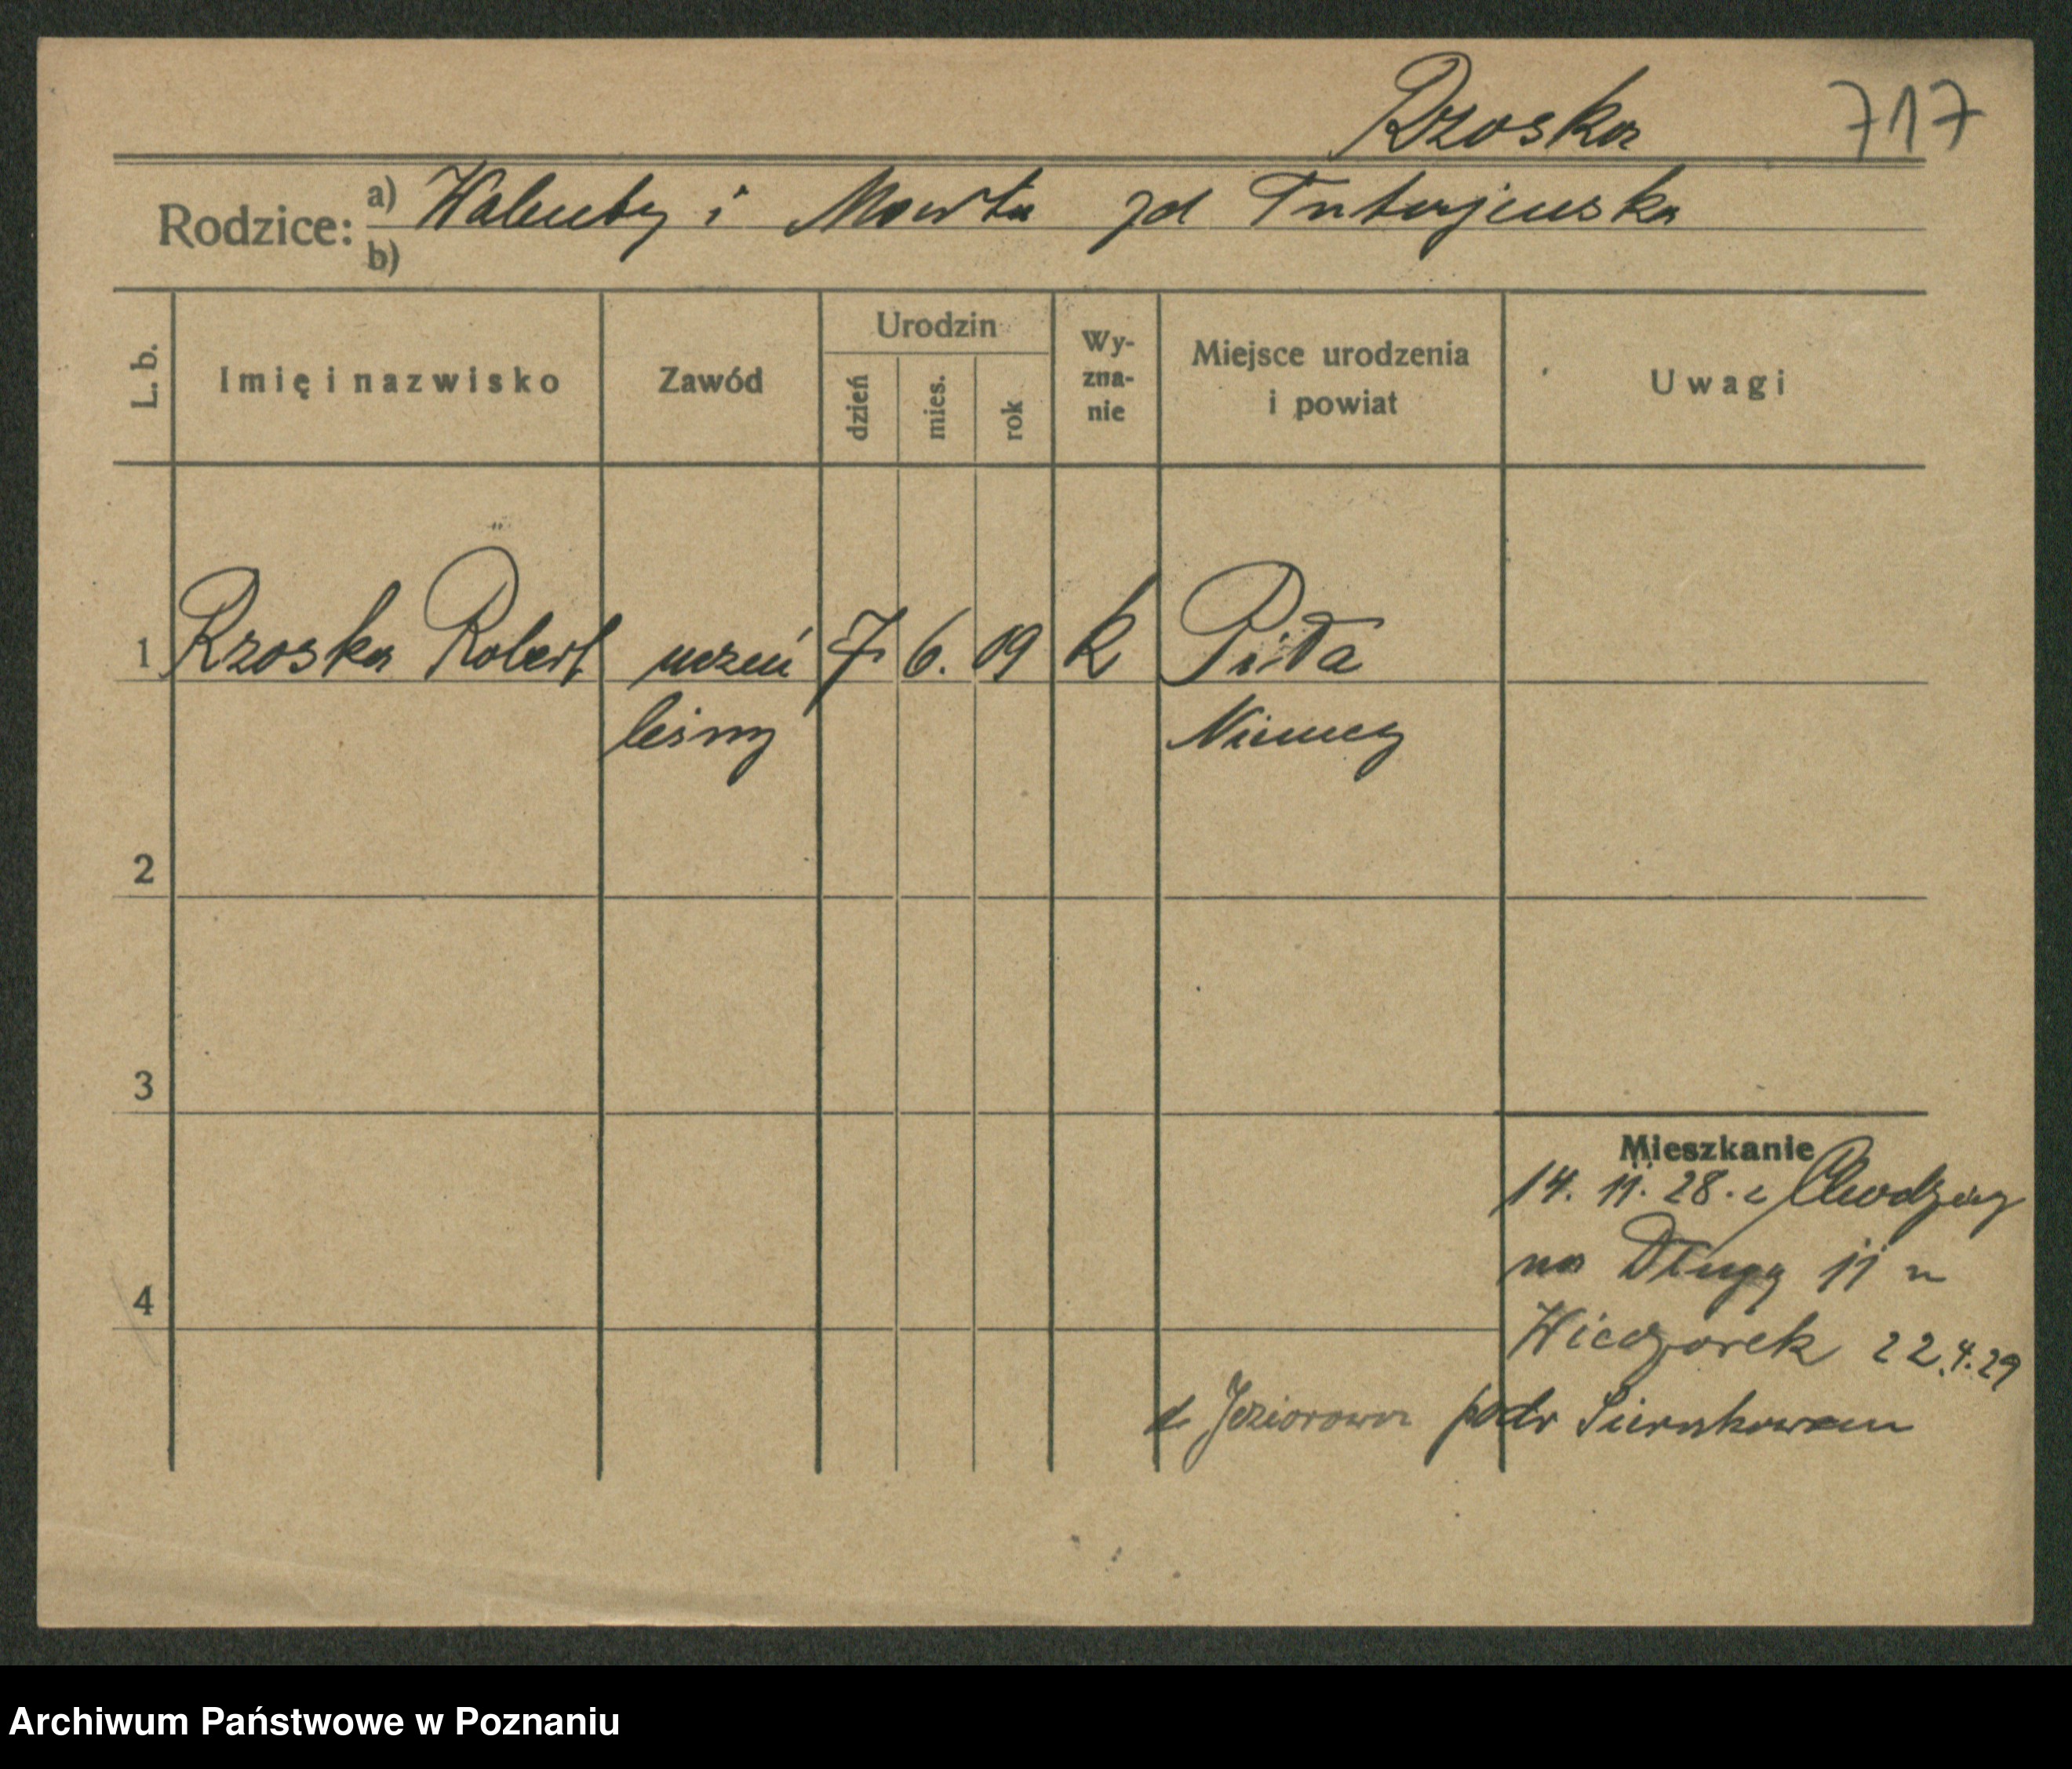 Rzoska 717
Rodzice: a) Walenty i Marta zd Tutajewska
b)
L. b. Imię i nazwisko Zawód Urodzin dzień mies. rok Wy-zna-nie Miejsce urodzenia i powiat Uwagi
1 Rzoska Robert uczeń 7 6. 09 k Piła
leśny Niemcy
2
3
Mieszkanie
14. 11. 28. z Chodzieży
na Długą 11 u
4
Wieczorek 22.4.29
do Jeziorowa
Archiwum Państwowe w Poznaniu